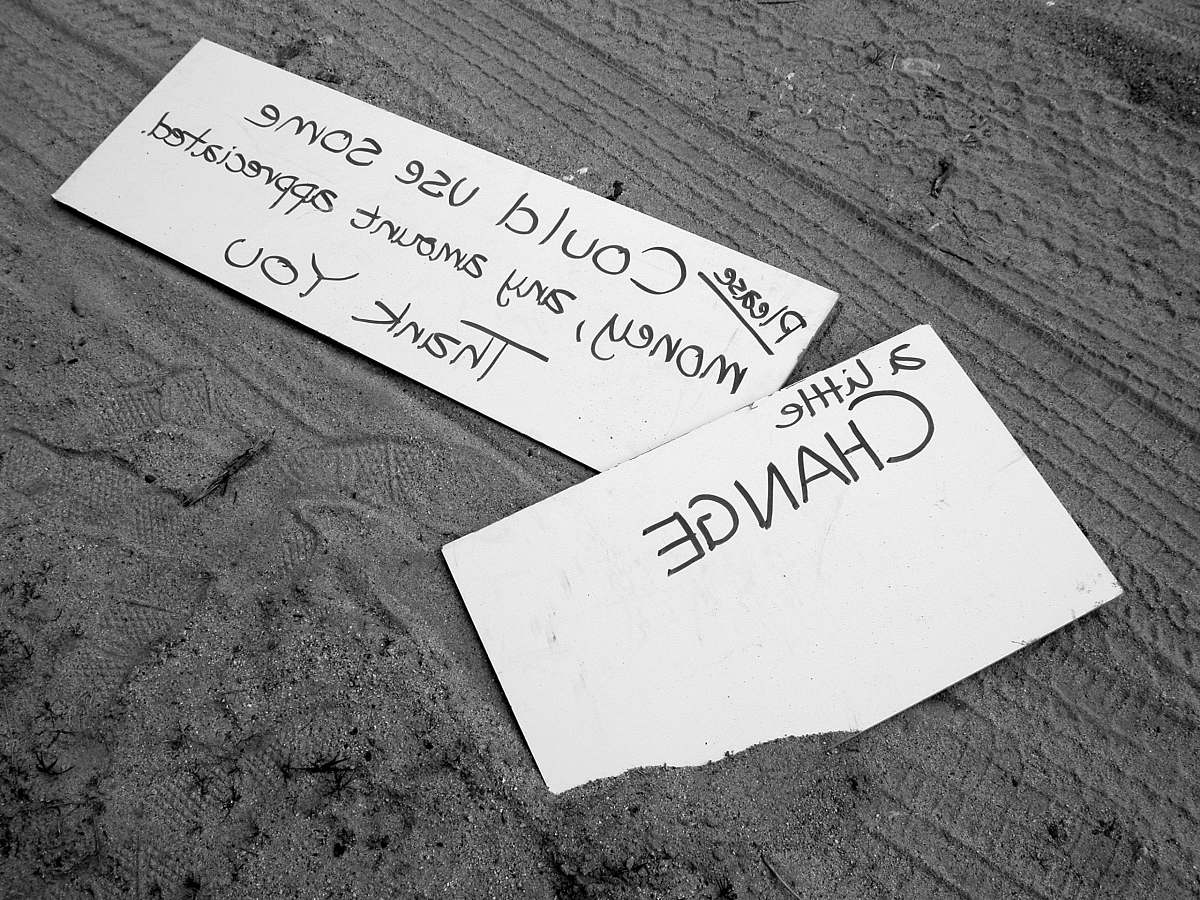 Please Could use some
money, any amount appreciated.
Thank You
a Little
CHANGE